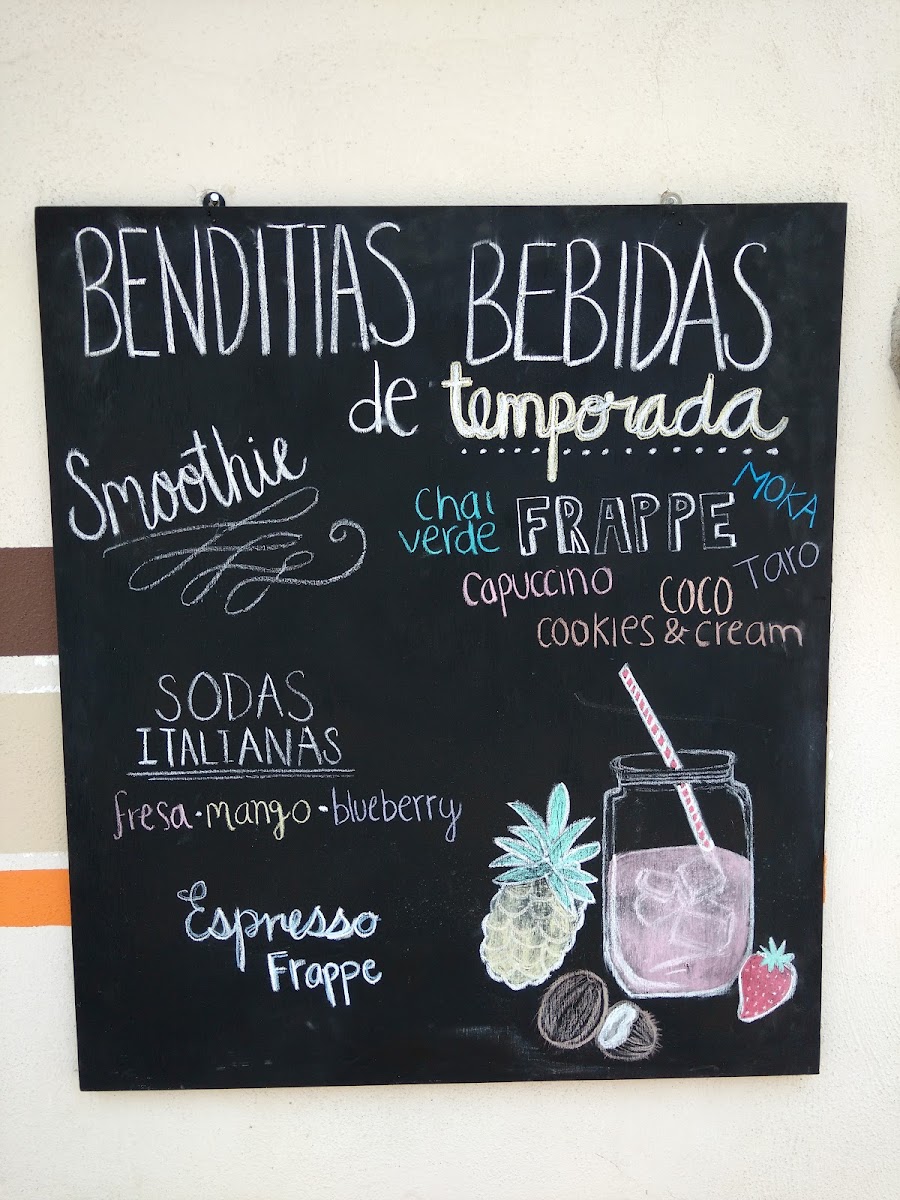 BENDITTAS BEBIDAS
de temporada
Smoothie
Chai
verde
FRAPPE
MOKA
Taro
Capuccino
COCO
COOKIES & cream
SODAS
ITALIANAS
fresa · mango · blueberry
Espresso
Frappe